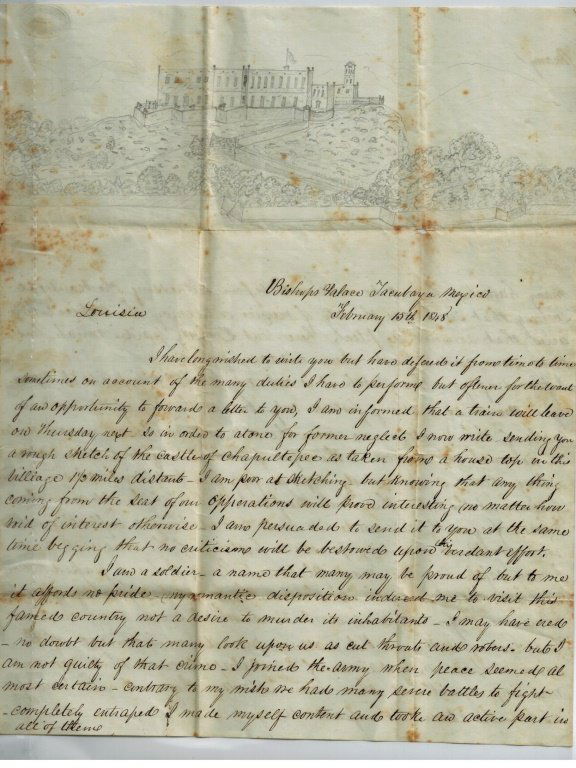 Bishops Palace Tacubaya Mexico
February 15th 1848
Louisia
I have long wished to write you but have defered it from time to time
sometimes on account of the many duties I have to perform but oftener for the want
of an opportunity to forward a letter to you, I am informed that a train will leave
on Thursday next so in order to atone for former neglect I now write sending you
a rough sketch of the castle of Chapultepec as taken from a house top in this
village 1½ miles distant – I am poor at sketching but knowing that any thing
coming from the seat of our opperations will prove interesting no matter how
void of interest otherwise – I am persuaded to send it to you at the same
time begging that no criticism will be bestowed upon this verdant effort.
I am a soldier – a name that many may be proud of but to me
it affords no pride – my romantic disposition induced me to visit this
famed country not a desire to murder its inhabitants – I may have ered
– no doubt but that many look upon us as cut throats and robers – but I
am not guilty of that crime – I joined the army when peace seemed al
most certain – contrary to my wish we had many severe battles to fight
– completely entraped I made myself content and tooke an active part in
all of them